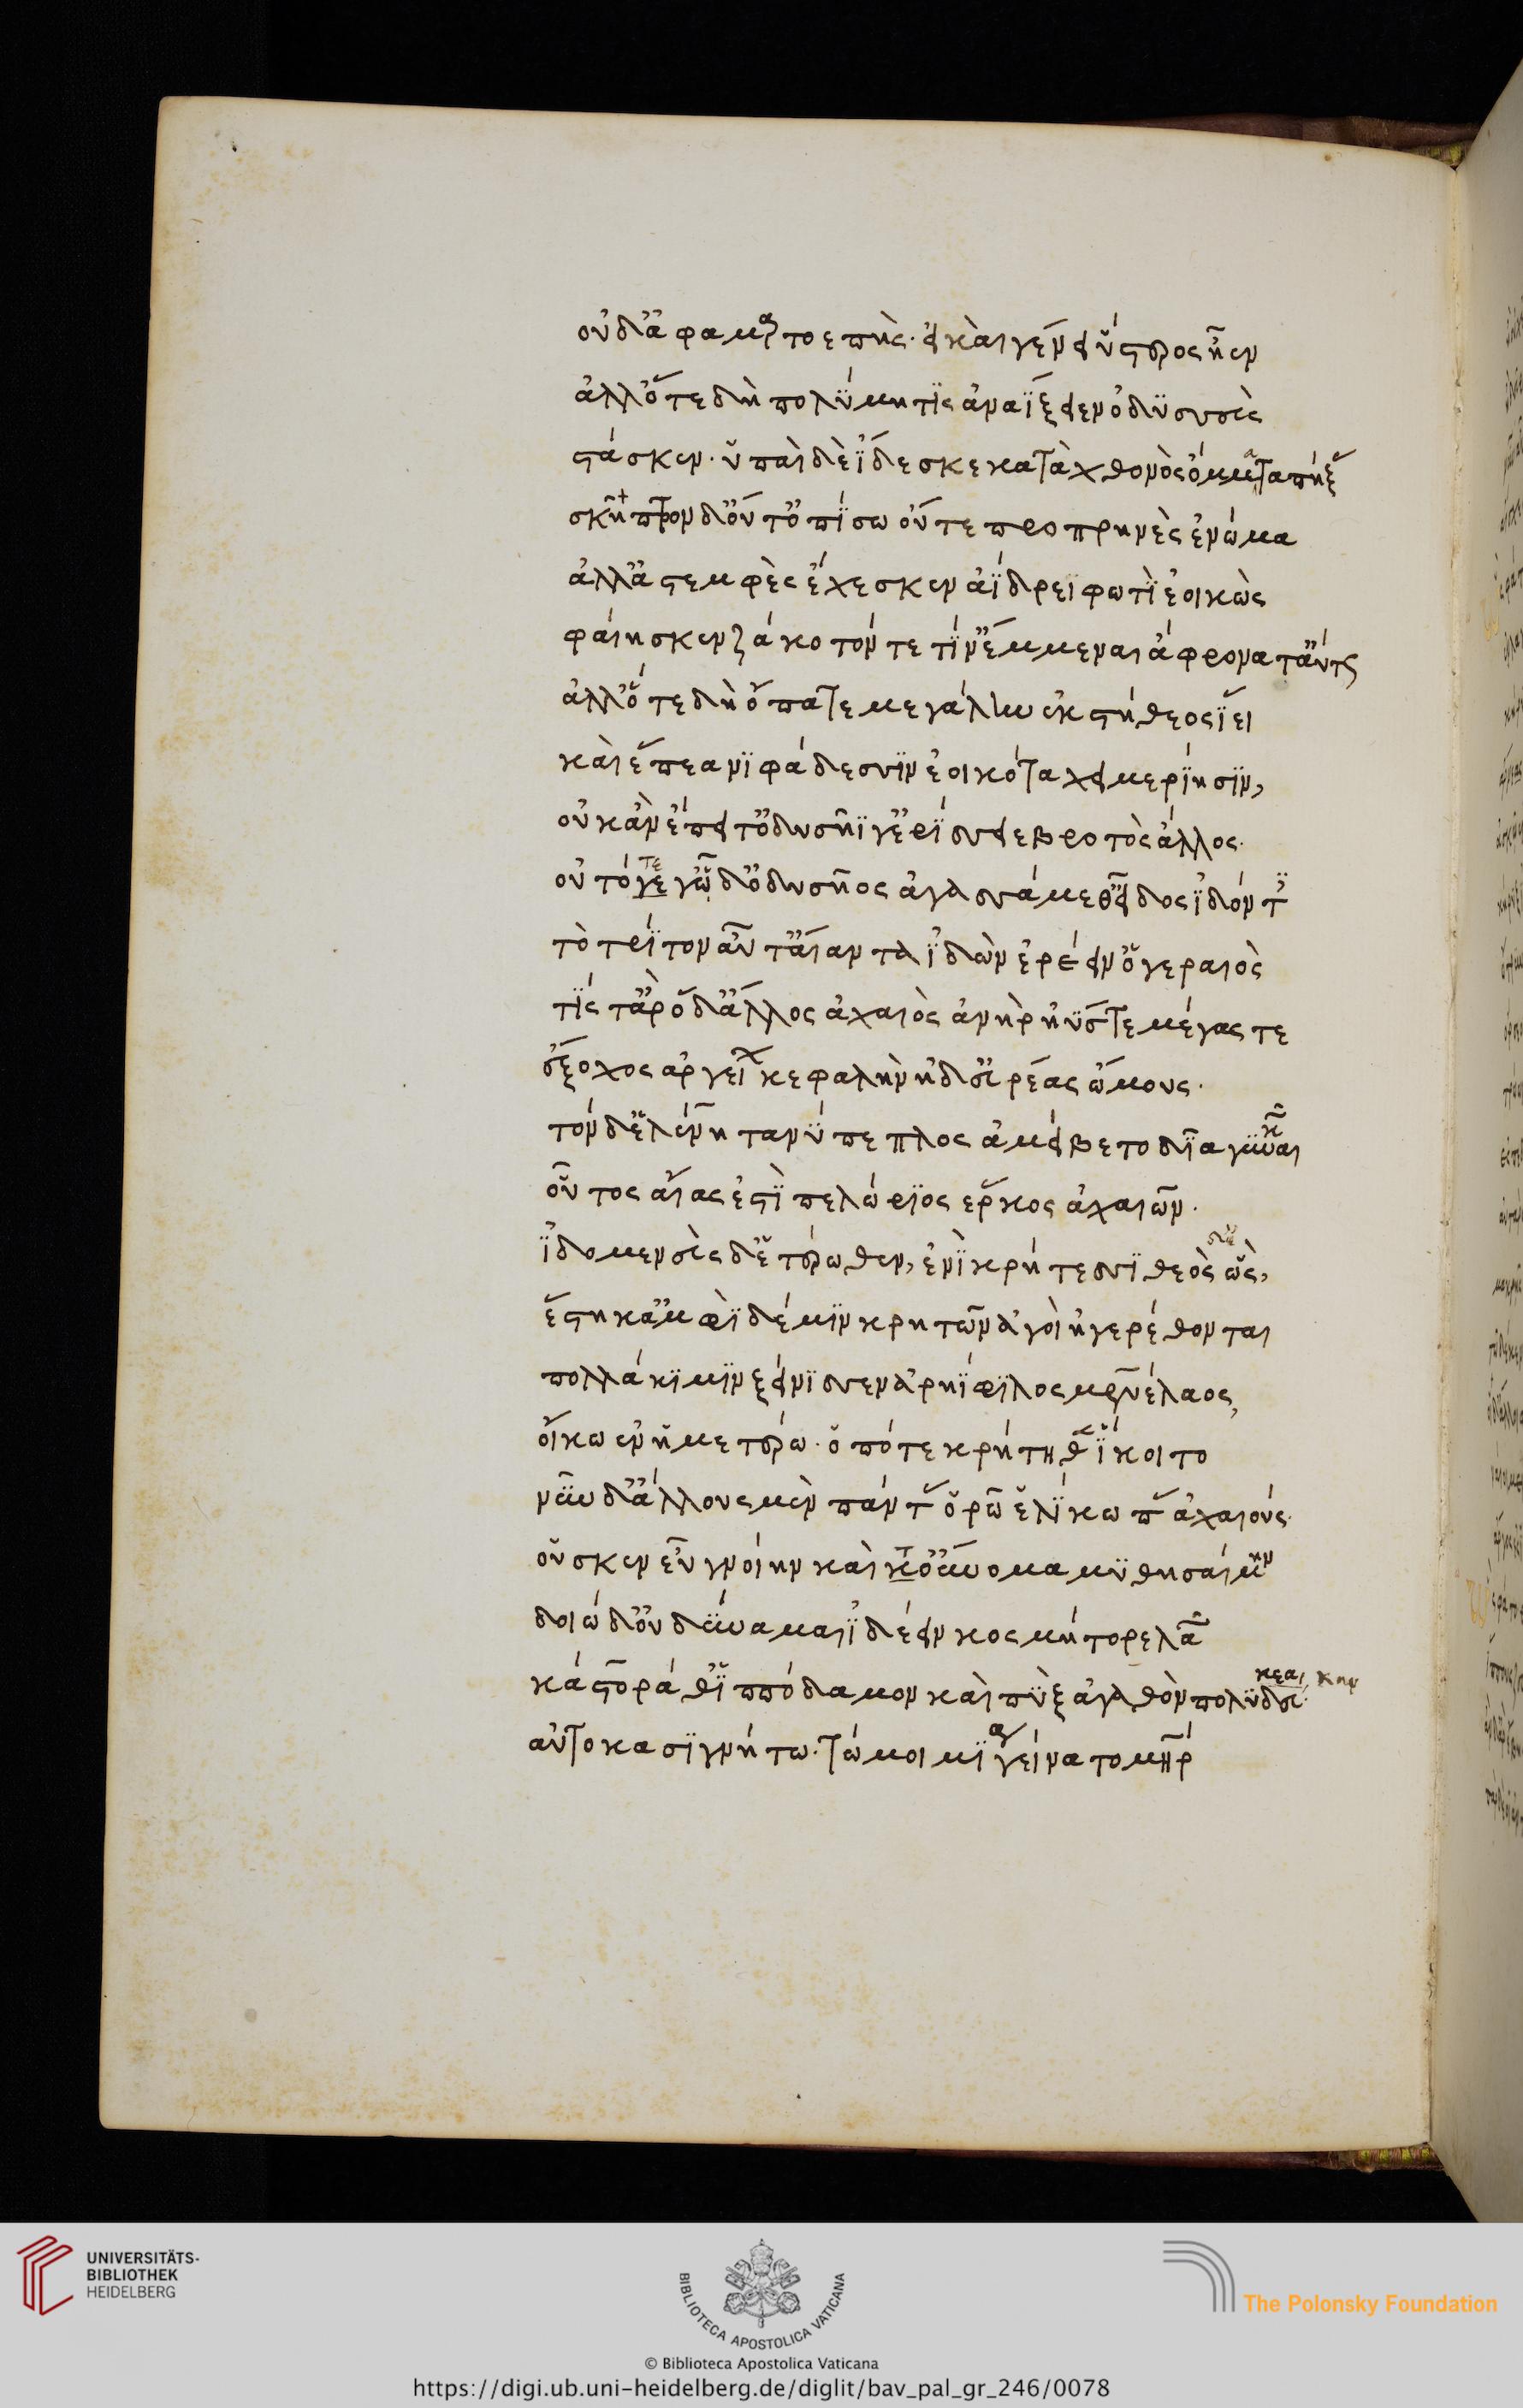 οὐδ' ἀφαμαρτοεπής· εἰ καὶ γένει ὕστερος ἦεν
ἀλλ' ὅτε δὴ πολύμητις ἀναΐξειεν ὀδυσσεὺς
στάσκεν· ὑπαὶ δὲ ἴδεσκε κατὰ χθονὸς ὄμματα πήξας
σκῆπτρον δ' οὔτ' ὀπίσω οὔτε προπρηνὲς ἐνώμα
ἀλλ' ἀστεμφὲς ἔχεσκεν ἀΐδρεϊ φωτὶ ἐοικὼς
φαίης κεν ζάκοτόν τέ τιν' ἔμμεναι ἄφρονά τ' αὔτως
ἀλλ' ὅτε δὴ ὄπα τε μεγάλην ἐκ στήθεος ἵει
καὶ ἔπεα νιφάδεσσιν ἐοικότα χειμερίησιν,
οὐκ ἂν ἔπειτ' ὀδυσῆΐ γ' ἐρίσσειε βροτὸς ἄλλος·
οὐ τότε γ' ὧδ' ὀδυσῆος ἀγασσάμεθ' εἶδος ἰδόντες
τὸ τρίτον αὖτ' αἴαντα ἰδὼν ἐρέειν' ὁ γεραιὸς
τίς τ' ἂρ ὅδ' ἄλλος ἀχαιὸς ἀνὴρ ἠΰς τε μέγας τε
ἔξοχος ἀργείων κεφαλὴν ἠδ' εὐρέας ὤμους·
τὸν δ' ἑλένη τανύπεπλος ἀμείβετο δῖα γυναικῶν
οὗτος αἴας ἐστὶ πελώριος ἕρκος ἀχαιῶν·
ἰδομενεὺς δ' ἑτέρωθεν, ἐνὶ κρήτεσσι θεὸς ὣς,
ἕστηκ' ἀμφὶ δέ μιν κρητῶν ἀγοὶ ἠγερέθονται
πολλάκι μιν ξείνισσεν ἀρηίφιλος μενέλαος,
οἴκω ἐν ἡμετέρω· ὁπότε κρήτηθεν ἵκοιτο
νῦν δ' ἄλλους μὲν πάντας ὁρῶ ἑλίκωπας ἀχαιούς·
οὕς κεν ἐὺ γνοίην καί τ' οὔνομα μυθησαίμην
δοιὼ δ' οὐ δύναμαι ἰδέειν κοσμήτορε λαῶν
κάστορά θ' ἱππόδαμον καὶ πὺξ ἀγαθὸν πολυδεύκεα· κην
αὐτοκασιγνήτω· τώ μοι μία γείνατο μήτηρ
UNIVERSITÄTS-
BIBLIOTHEK
HEIDELBERG
BIBLIOTECA APOSTOLICA VATICANA
The Polonsky Foundation
© Biblioteca Apostolica Vaticana
https://digi.ub.uni-heidelberg.de/diglit/bav_pal_gr_246/0078